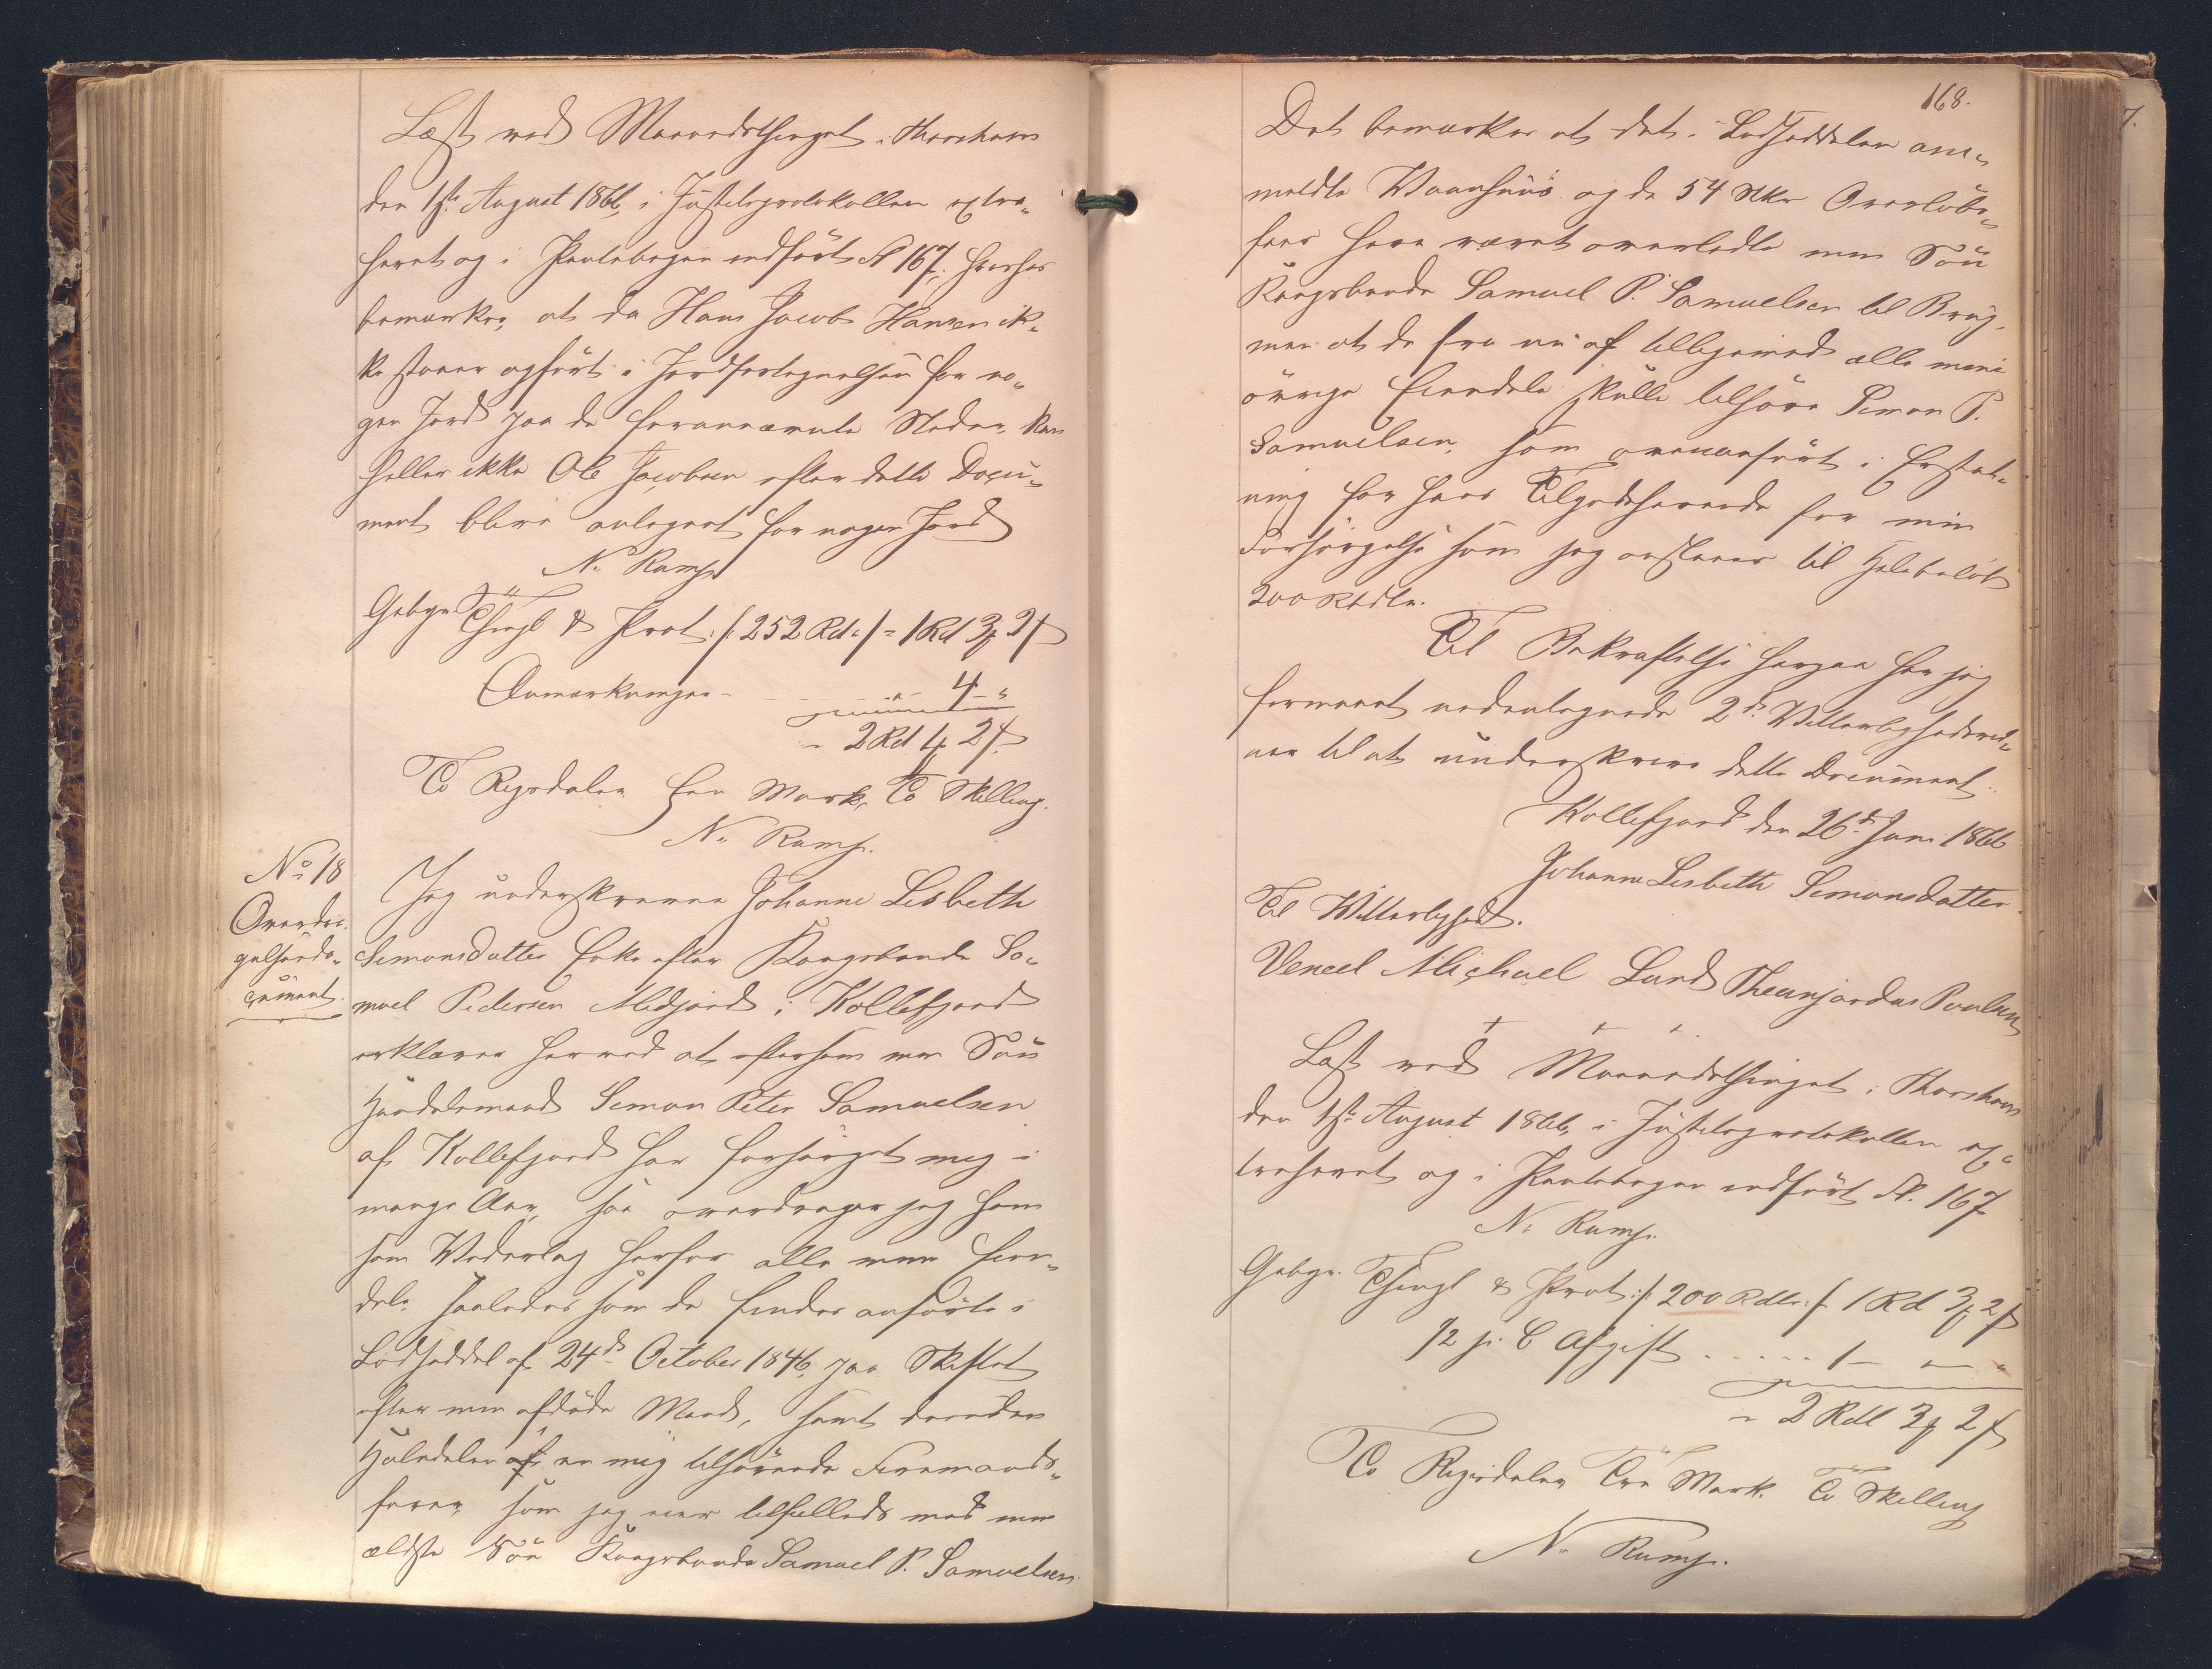 Læst ved Maanedsthinget i Thorshavn
den 1ste August 1866, i Justitsprotokollen extra-
heret og i Pantebogen indført Fol 167, hvorhos
bemærkes, at da Hans Jacob Hansen ik-
ke staaer opført i Jordfortegnelsen for no-
gen Jord paa de forannævnte Steder, kan
heller ikke Ole Jacobsen efter dette Docu-
ment blive antegnet for nogen Jord
N. Rump
Gebyr Thingl & Prot. /: 252 Rd :/ = 1 Rd 3 ꝳ 2 ſ
Anmærkninger - 4 - "
= 2 Rd 1 ꝳ 2 ſ
To Rigsdaler Een Mark, To Skilling.
N. Rump.
No 18
Overdra-
gelsesdo-
cument.
Jeg underskrevne Johanne Lisbeth
Simonsdatter Enke efter Kongsbonde Sa-
muel Pedersen Midjord i Kollefjord
erklærer herved at eftersom min Søn
Handelsmand Simon Peter Samuelsen
af Kollefjord har forsørget mig i
mange Aar, saa overdrager jeg ham
som Vederlag herfor alle mine Eien-
dele saaledes som de findes anførte i
Lodseddel af 24de October 1846, paa Skiftet
efter min afdøde Mand, samt desuden
Halvdelen af en mig tilhørende Firemands-
farer, som jeg eier tilfælleds med min
ældste Søn Kongsbonde Samuel P. Samuelsen.
168.
Det bemærkes at det i Lodseddelen an-
meldte Vaanhuus og de 54 Stkr Overløbs-
faar have været overladte min Søn
Kongsbonde Samuel P. Samuelsen til Brug,
men at de fra nu af tilligemed alle mine
øvrige Eiendele skulle tilhøre Simon P.
Samuelsen, som ovenanført i Erstat-
ning for hans Tilgodehavende for min
Forsørgelse som jeg anslaaer til Heelebeløb
200 Rbdlr.
Til Bekræftelse herpaa har jeg
formaaet nedentegnede 2de Vitterlighedsvid-
ner til at underskrive dette Document.
Kollefjord den 26de Juni 1866
Johanne Lisbeth Simonsdatter
Til Vitterlighed.
Vencel Michael Lund Poulsen
Læst ved Maanedsthinget i Thorshavn
den 1ste August 1866, i Justitsprotokollen ex-
traheret og i Pantebogen indført Fol. 167
N. Rump.
Gebyr. Thingl & Prot. /: 200 Rdlr. :/ 1 Rd 3 ꝳ 2 ſ
1/2 p. C Afgift . . . . . 1 - " - "
= 2 Rdl 3 ꝳ 2 ſ
To Rigsdaler Tre Mark. To Skilling
N. Rump.